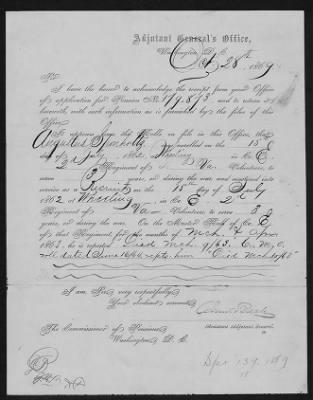 Adjutant General's Office,
Washington, D. C.
Oct 28th 1869
Sir:
I have the honor to acknowledge the receipt from your Office
of application for Pension No. 179.873, and to return it
herewith, with such information as is furnished by the files of this
Office.
It appears from the Rolls on file in this Office, that
Augustus was enrolled on the 15th
day of July, 1862, at in Co. E,
2d Regiment of Va. Volunteers, to
serve 3 years, or during the war, and mustered into
service as a Recruit on the 15th day of July,
1862, at Wheeling, in Co. E, 2d
Regiment of Va Volunteers, to serve 3
years, or during the war. On the Muster Roll of Co. E
of that Regiment, for the months of Mch & Apr,
1863, he is reported Died Mch 9/63. Co. M.O.
Roll dated June 16/64 repts him Died Mch
I am, Sir, very respectfully,
Your obedient servant,
Assistant Adjutant General.
The Commissioner of Pensions,
Washington, D. C.